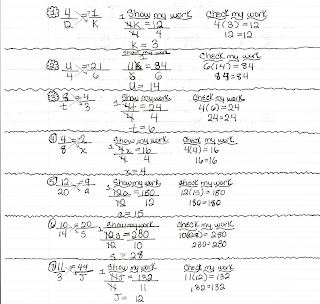 ① 4/12 = 1/k   1 Show my work   Check my work
4k = 12   4(3) = 12
4   4   12 = 12
k = 3
② u/4 = 21/6   Show my work   Check my work
1   u6 = 84   6(14) = 84
6   6   84 = 84
u = 14
③ 8/t = 4/3   1 Show my work   Check my work
4t = 24   4(6) = 24
4   4   24 = 24
t = 6
④ 4/8 = 2/x   1 Show my work   Check my work
4x = 16   4(4) = 16
4   4   16 = 16
x = 4
⑤ 12/20 = 9/a   1 Show my work   Check my work
12a = 180   12(15) = 180
12   12   180 = 180
a = 15
⑥ 10/14 = 20/s   1 Show my work   Check my work
10s = 280   10(28) = 280
10   10   280 = 280
s = 28
⑦ 11/3 = 44/J   1 Show my work   Check my work
11J = 132   11(12) = 132
11   11   132 = 132
J = 12